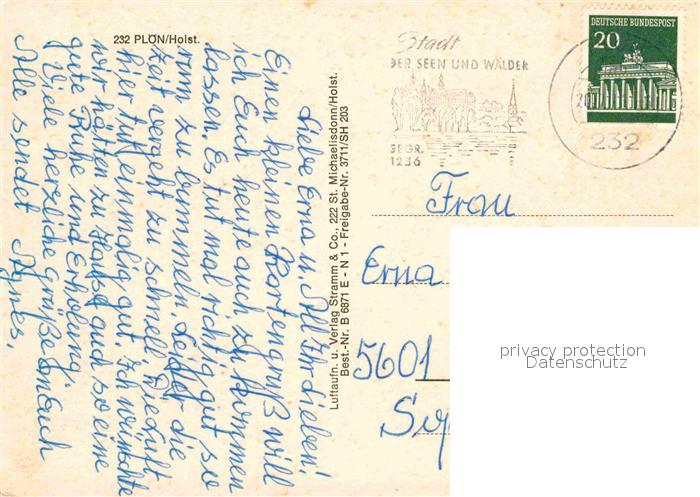 232 PLÖN/Holst.
Liebe Erna u. All Ihr Lieben!
Einen kleinen Kartengruß will
ich Euch heute auch zukommen
lassen. Es tut mal richtig gut so
rum zu bummeln. Leider die
Zeit vergeht zu schnell. Die Luft
hier tut einmalig gut. Ich wünschte
wir hätten zu Hause auch so eine
gute Ruhe und Erholung.
Viele herzliche Grüße an Euch
Alle sendet Agnes.
Luftaufn. u. Verlag Stramm & Co., 222 St. Michaelisdonn/Holst.
Best.-Nr. B 6871 E - N 1 - Freigabe-Nr. 3711/SH 203
Stadt
DER SEEN UND WÄLDER
GEGR.
1236
DEUTSCHE BUNDESPOST
20
232
Frau
Erna
5601
privacy protection
Datenschutz